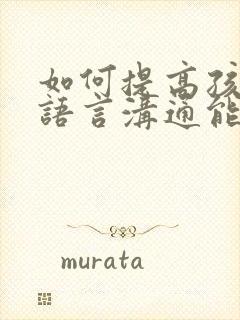 如何提高孩
語言溝通能
murata